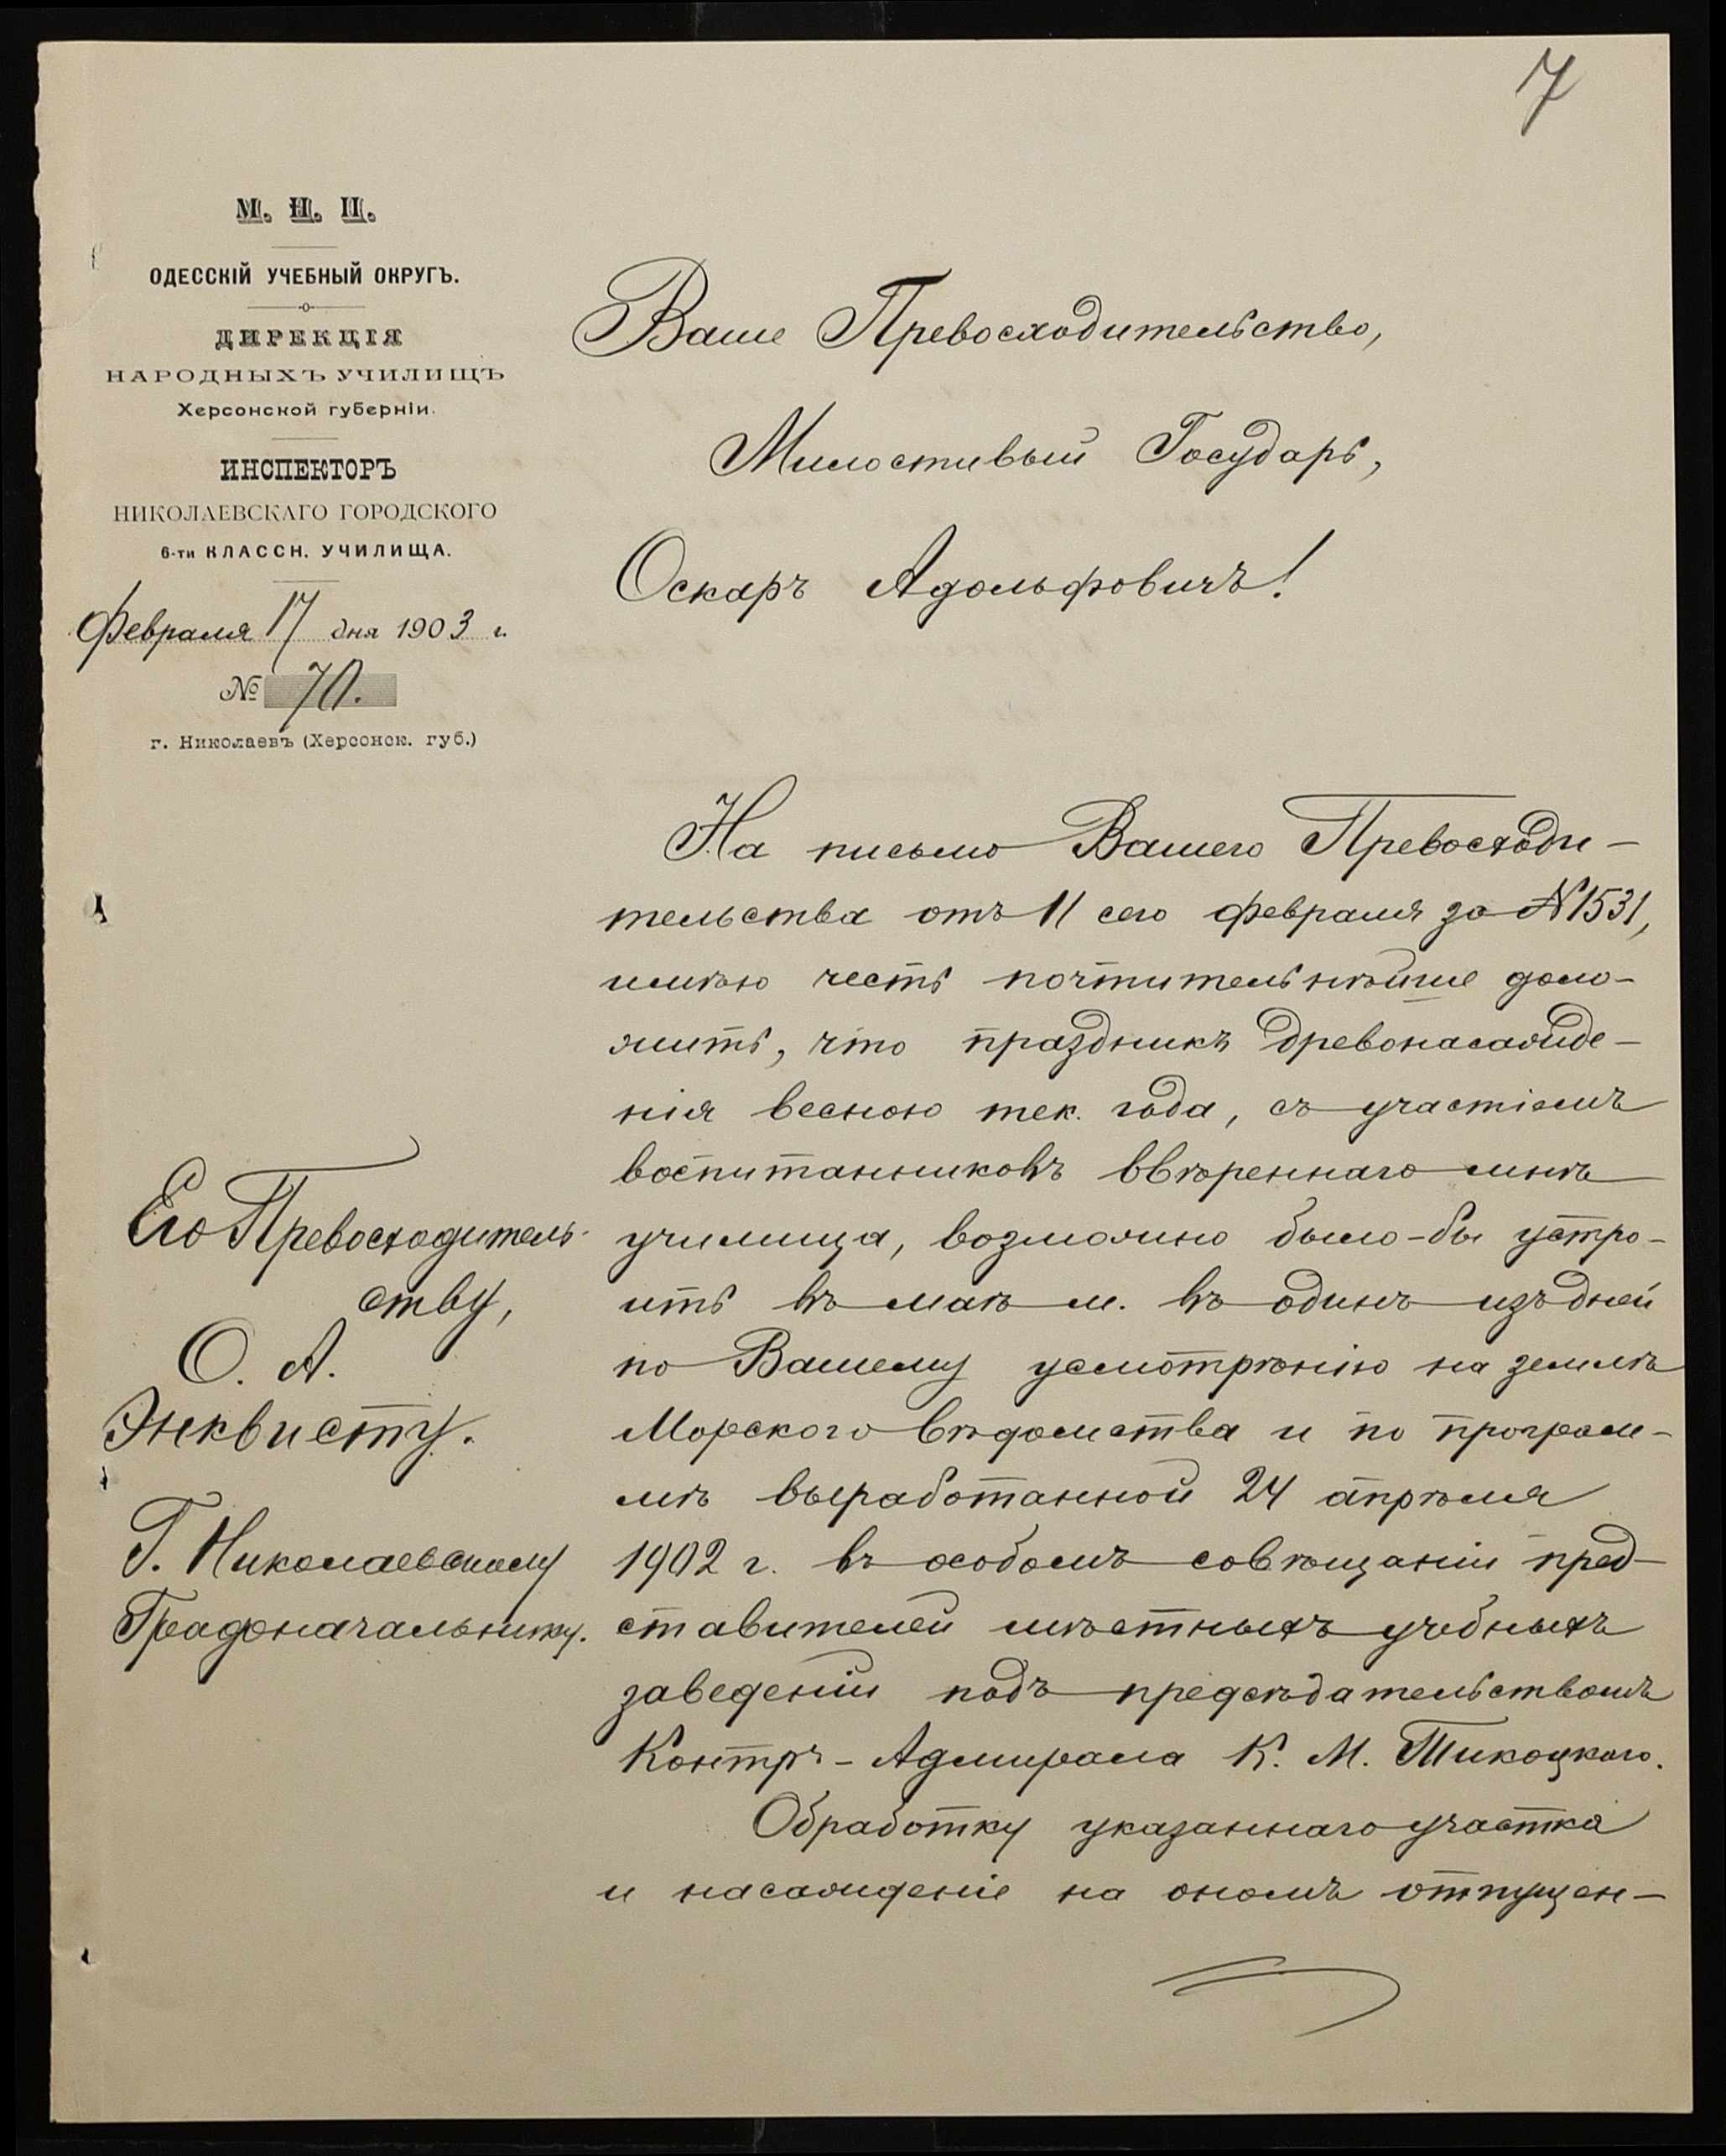 7
М. Н. П.
ОДЕССКІЙ УЧЕБНЫЙ ОКРУГЪ.
ДИРЕКЦІЯ
НАРОДНЫХЪ УЧИЛИЩЪ
Херсонской губерніи.
ИНСПЕКТОРЪ
НИКОЛАЕВСКАГО ГОРОДСКОГО
6-ти КЛАССН. УЧИЛИЩА.
Февраля 17 дня 1903 г.
№ 70.
г. Николаевъ (Херсонск. губ.)
Ваше Превосходительство,
Милостивый Государь,
Оскаръ Адольфовичъ!
На письмо Вашего Превосходи-
тельства отъ 11 сего февраля за № 1531,
имѣю честь почтительнѣйше доло-
жить, что праздникъ древонасажде-
нія весною тек. года, съ участіемъ
воспитанниковъ ввѣреннаго мнѣ
училища, возможно было-бы устро-
ить въ маѣ м. въ одинъ изъ дней
по Вашему усмотрѣнію на землѣ
Морского вѣдомства и по програм-
мѣ выработанной 24 апрѣля
1902 г. въ особомъ совѣщаніи пред-
ставителей мѣстныхъ учебныхъ
заведеній подъ предсѣдательствомъ
Контръ-Адмирала К. М. Тикоцкого.
Обработку указаннаго участка
и насажденіе на ономъ отпущен-
Его Превосходитель-
ству,
О. А.
Энквисту.
Г. Николаевскому
Градоначальнику.